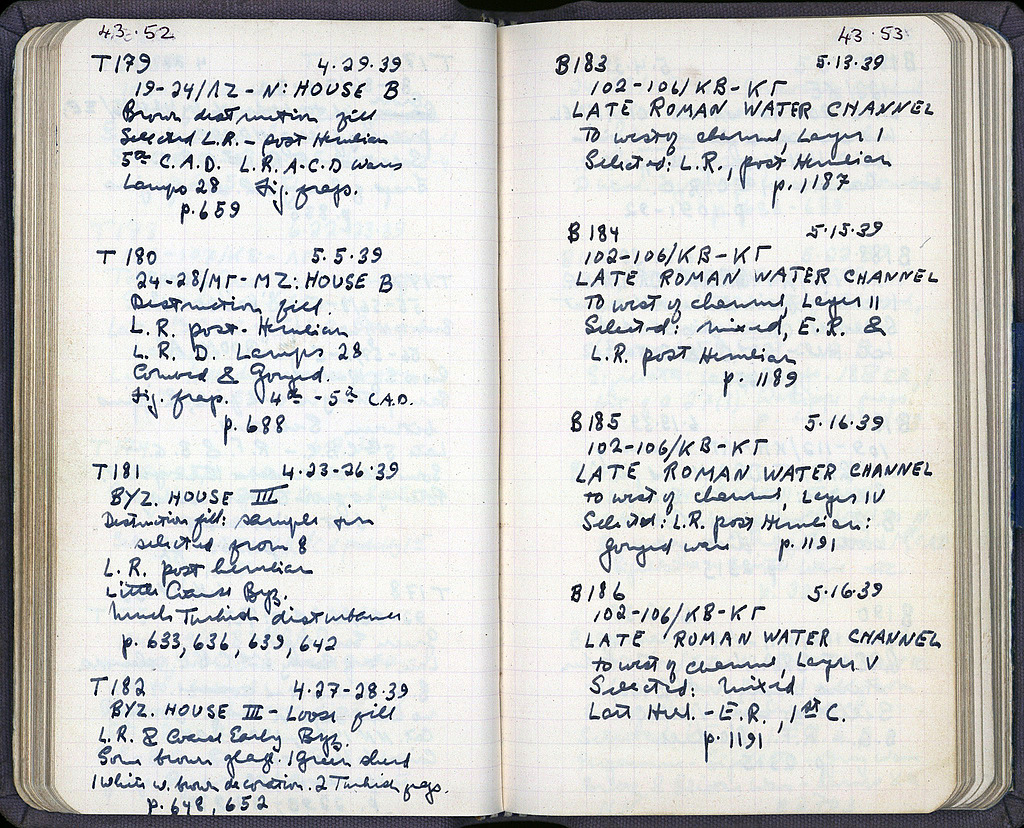 43·52
T179 4·29·39
19-24/ΛΖ-Ν: HOUSE B
Brown destruction fill
Selected L.R. - post Herulian
5th C.A.D. L.R.A-C-D wares
Lamps 28 Fig. frags.
p.659
T 180 5.5.39
24-28/ΜΓ-ΜΖ: HOUSE B
Destruction fill.
L.R. post-Herulian
L.R.D. Lamps 28
Combed & Gouged.
Fig. frag. 4th-5th C.A.D.
p.688
T181 4·23-26·39
BYZ. HOUSE III
Destruction fill: sample tin
selected from 8
L.R. post herulian
Little Coarse Byz.
Much Turkish disturbance
p. 633, 636, 639, 642
T182 4·27-28·39
BYZ. HOUSE III - Loose fill
L.R. & Coarse Early Byz.
Some brown glaze. 1 Green sherd
1 White w. brown decoration. 2 Turkish frags.
p. 648, 652
43·53
B183 5·13·39
102-106/ΚΒ-ΚΓ
LATE ROMAN WATER CHANNEL
To west of channel, Layer I
Selected: L.R., post Herulian
p.1187
B 184 5·15·39
102-106/ΚΒ-ΚΓ
LATE ROMAN WATER CHANNEL
To west of channel, Layer II
Selected: mixed, E.R. &
L.R. post Herulian
p. 1189
B185 5·16·39
102-106/ΚΒ-ΚΓ
LATE ROMAN WATER CHANNEL
to west of channel, Layer IV
Selected: L.R. post Herulian:
gouged ware p.1191
B186 5·16·39
102-106/ΚΒ-ΚΓ
LATE ROMAN WATER CHANNEL
to west of channel, Layer V
Selected: mixed
Late Hell. - E.R., 1st C.
p.1191